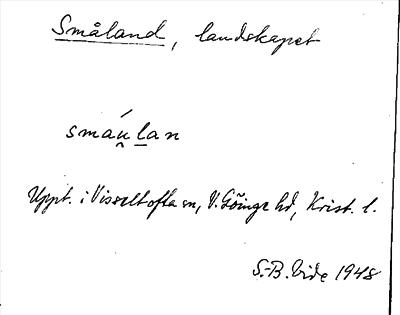 Småland, landskapet
smáu̯l̠an
Uppt. i Visseltofta sn, V. Göinge hd, Krist. l.
S.-B. Vide 1948